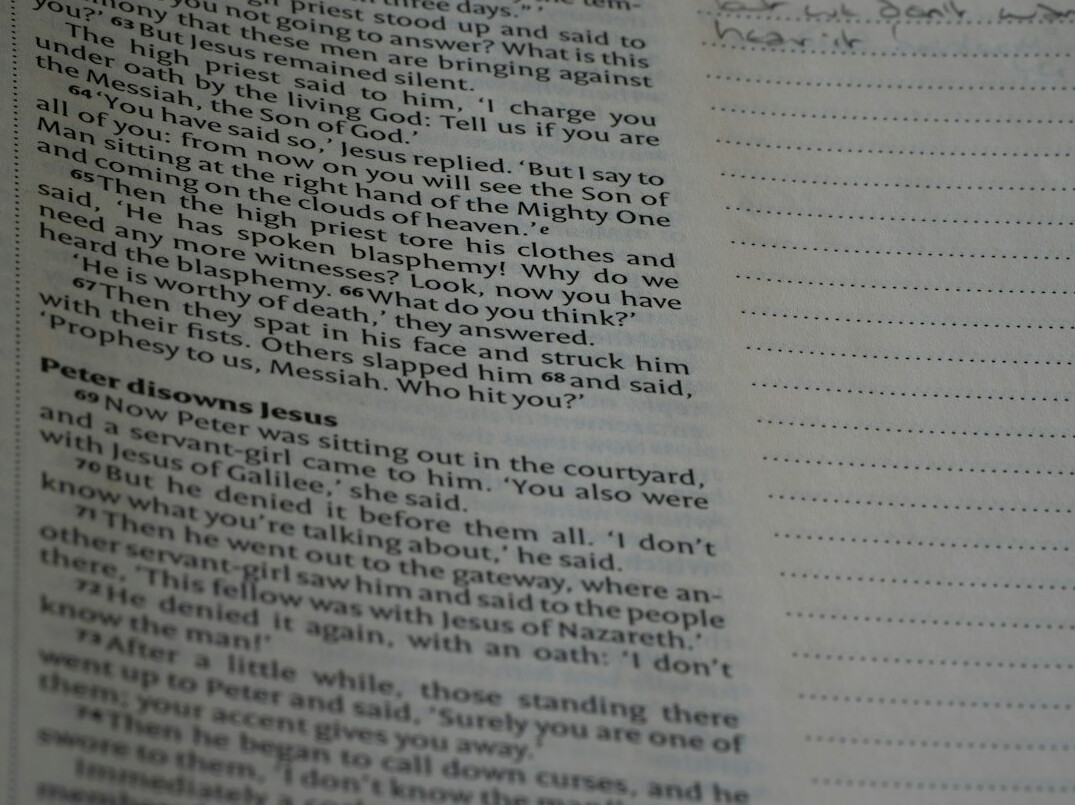 three days."'
priest stood up and said to
you not going to answer? What is this
mony that these men are bringing against
you?' 63 But Jesus remained silent.
The high priest said to him, 'I charge you
under oath by the living God: Tell us if you are
the Messiah, the Son of God.'
64 'You have said so,' Jesus replied. 'But I say to
all of you: from now on you will see the Son of
Man sitting at the right hand of the Mighty One
and coming on the clouds of heaven.' e
65 Then the high priest tore his clothes and
said, 'He has spoken blasphemy! Why do we
need any more witnesses? Look, now you have
heard the blasphemy. 66 What do you think?'
'He is worthy of death,' they answered.
67 Then they spat in his face and struck him
with their fists. Others slapped him 68 and said,
'Prophesy to us, Messiah. Who hit you?'
Peter disowns Jesus
69 Now Peter was sitting out in the courtyard,
and a servant-girl came to him. 'You also were
with Jesus of Galilee,' she said.
70 But he denied it before them all. 'I don't
know what you're talking about,' he said.
71 Then he went out to the gateway, where an-
other servant-girl saw him and said to the people
there, 'This fellow was with Jesus of Nazareth.'
72 He denied it again, with an oath: 'I don't
know the man!'
73 After a little while, those standing there
went up to Peter and said, 'Surely you are one of
them; your accent gives you away.'
74 Then he began to call down curses, and he
swore to them, 'I don't know the man!'
Immediately a
but don't
hear it